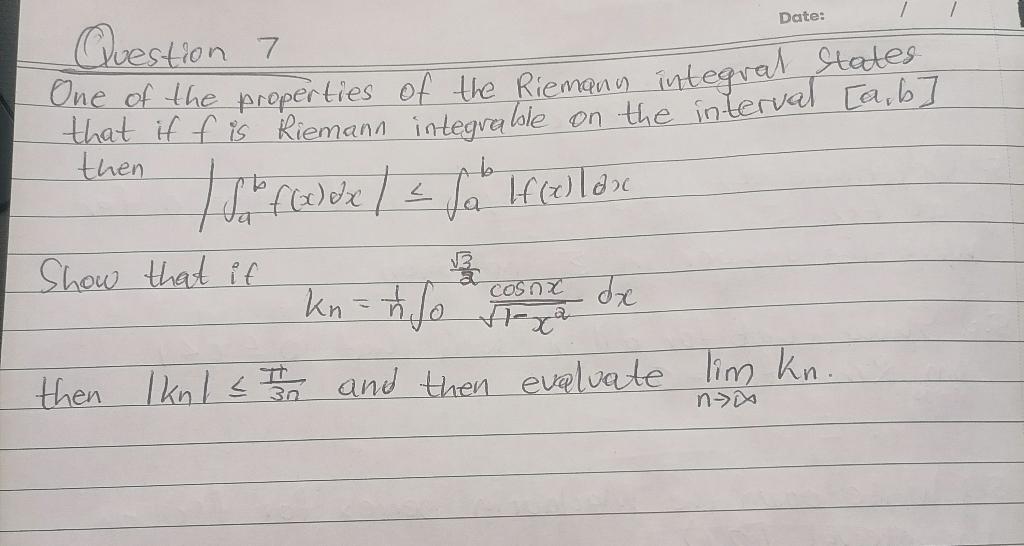 Date: / /
Question 7
One of the properties of the Riemann integral States
that if f is Riemann integrable on the interval [a,b]
then
|∫ₐᵇ f(x)dx| ≤ ∫ₐᵇ |f(x)|dx
Show that if
kn = 1/n ∫₀^(√3/2) cosnx/√(1-x²) dx
then |kn| ≤ π/3n and then evaluate lim kn.
n→∞